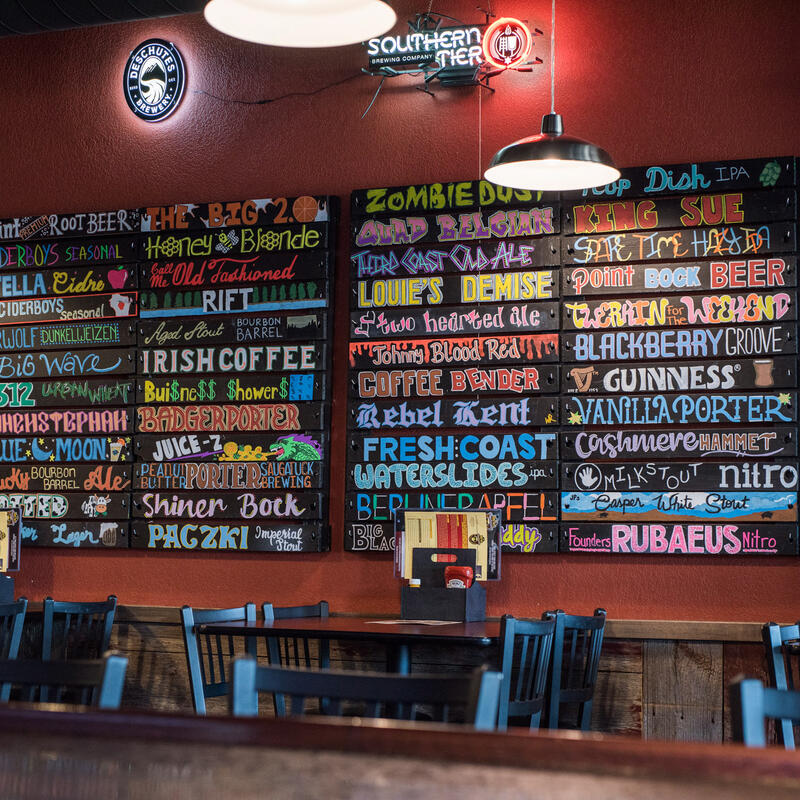 DESCHUTES
BREWERY
SOUTHERN
TIER
BREWING COMPANY
PREMIUM ROOT BEER
SEASONAL
Cidre
CIDERBOYS
seasonal
DUNKELWEIZEN
Big Wave
312 URBAN WHEAT
MOON
BOURBON
BARREL Ale
Lager
THE BIG 2.0
Honey Blonde
Call
Me Old Fashioned
RIFT
Aged Stout BOURBON
BARREL
IRISH COFFEE
Bui$ne$$ $hower$
BADGERPORTER
JUICE-Z
PEANUT
BUTTER PORTER SAUGATUCK
BREWING
Shiner Bock
PACZKI Imperial
Stout
ZOMBIE DUST
QUAD BELGIAN
THIRD COAST OLD ALE
LOUIE'S DEMISE
two hearted ale
Johnny Blood Red
COFFEE BENDER
Rebel Kent
FRESH COAST
WATERSLIDES ipa
BERLINER APFEL
Dish IPA
KING SUE
SPARE TIME HAZY IPA
Point BOCK BEER
TWERKIN FOR THE WEEKEND
BLACKBERRY GROOVE
GUINNESS®
VANILLA PORTER
Cashmere HAMMET
MILK STOUT nitro
JP's Casper White Stout
Founders RUBAEUS Nitro